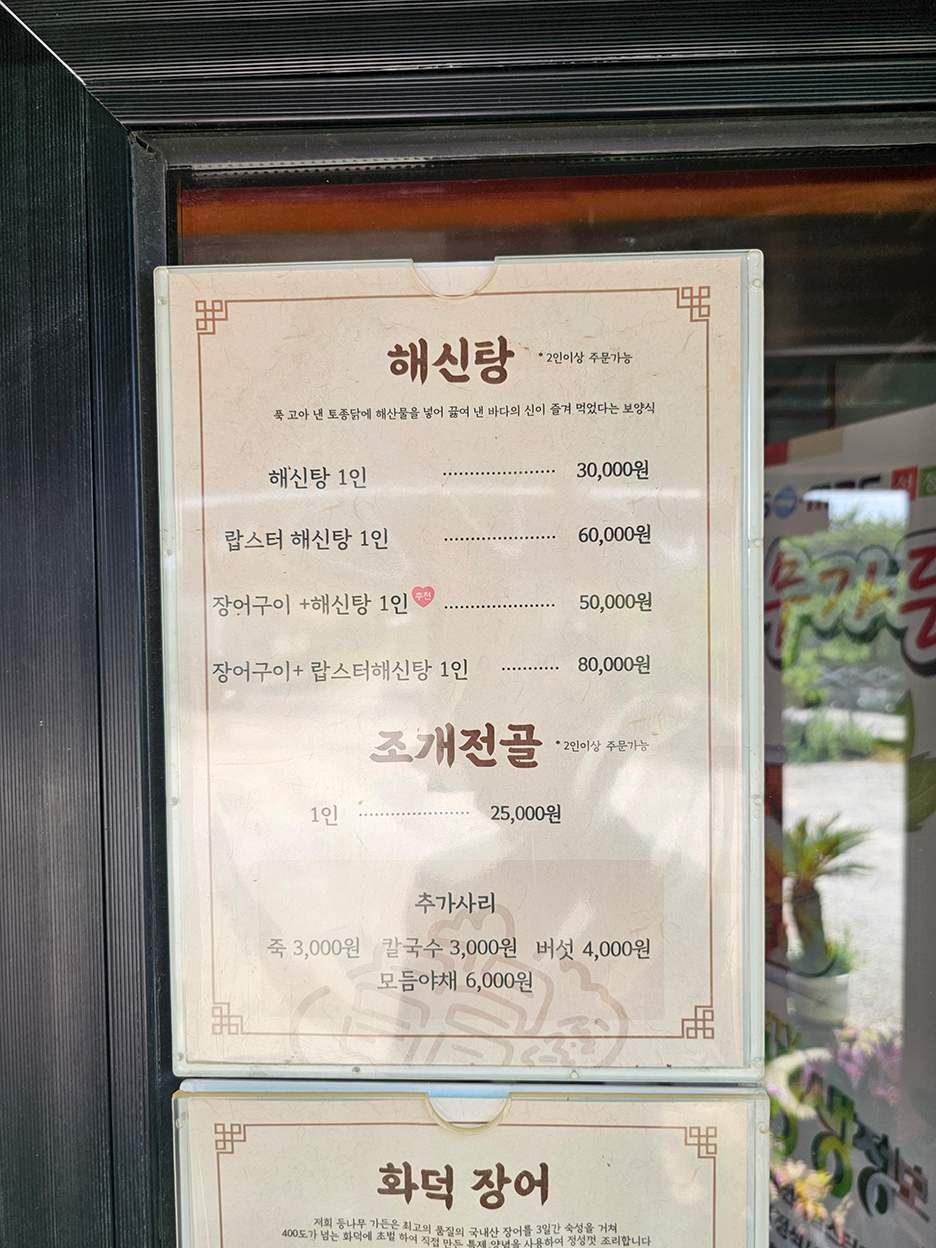 해신탕 * 2인이상 주문가능
푹 고아 낸 토종닭에 해산물을 넣어 끓여 낸 바다의 신이 즐겨 먹었다는 보양식
해신탕 1인 ········ 30,000원
랍스터 해신탕 1인 ········ 60,000원
장어구이 +해신탕 1인 추천 ········ 50,000원
장어구이+ 랍스터해신탕 1인 ········ 80,000원
조개전골 * 2인이상 주문가능
1인 ········ 25,000원
추가사리
죽 3,000원 칼국수 3,000원 버섯 4,000원
모듬야채 6,000원
화덕 장어
저희 등나무 가든은 최고의 품질의 국내산 장어를 3일간 숙성을 거쳐
400도가 넘는 화덕에 초벌 하여 직접 만든 특제 양념을 사용하여 정성껏 조리합니다